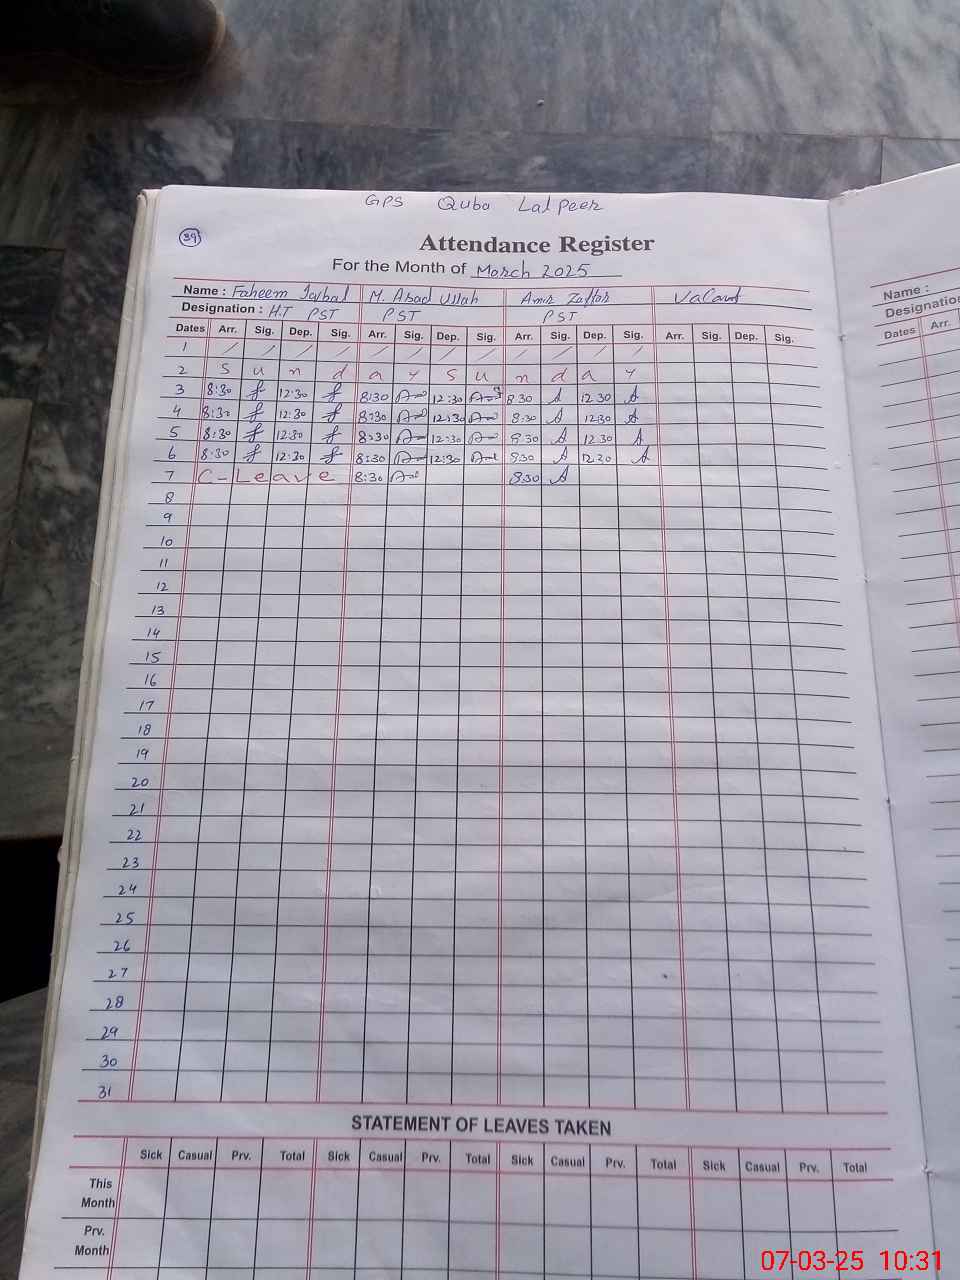 GPS Quba Lalpeer
39
Attendance Register
For the Month of March 2025
Name : Faheem Iqbal M. Asad Ullah Amir Zaffar Vacant
Designation : H.T PST PST PST
Dates Arr. Sig. Dep. Sig. Arr. Sig. Dep. Sig. Arr. Sig. Dep. Sig. Arr. Sig. Dep. Sig.
1 / / / / / / / / / / / /
2 S u n d a y S u n d a y
3 8:30 12:30 8:30 12:30 8:30 12:30
4 8:30 12:30 8:30 12:30 8:30 12:30
5 8:30 12:30 8:30 12:30 8:30 12:30
6 8:30 12:30 8:30 12:30 8:30 12:30
7 C-Leave 8:30 8:30
8
9
10
11
12
13
14
15
16
17
18
19
20
21
22
23
24
25
26
27
28
29
30
31
STATEMENT OF LEAVES TAKEN
Sick Casual Prv. Total Sick Casual Prv. Total Sick Casual Prv. Total Sick Casual Prv. Total
This
Month
Prv.
Month
Name :
Designation
Dates Arr.
07-03-25 10:31